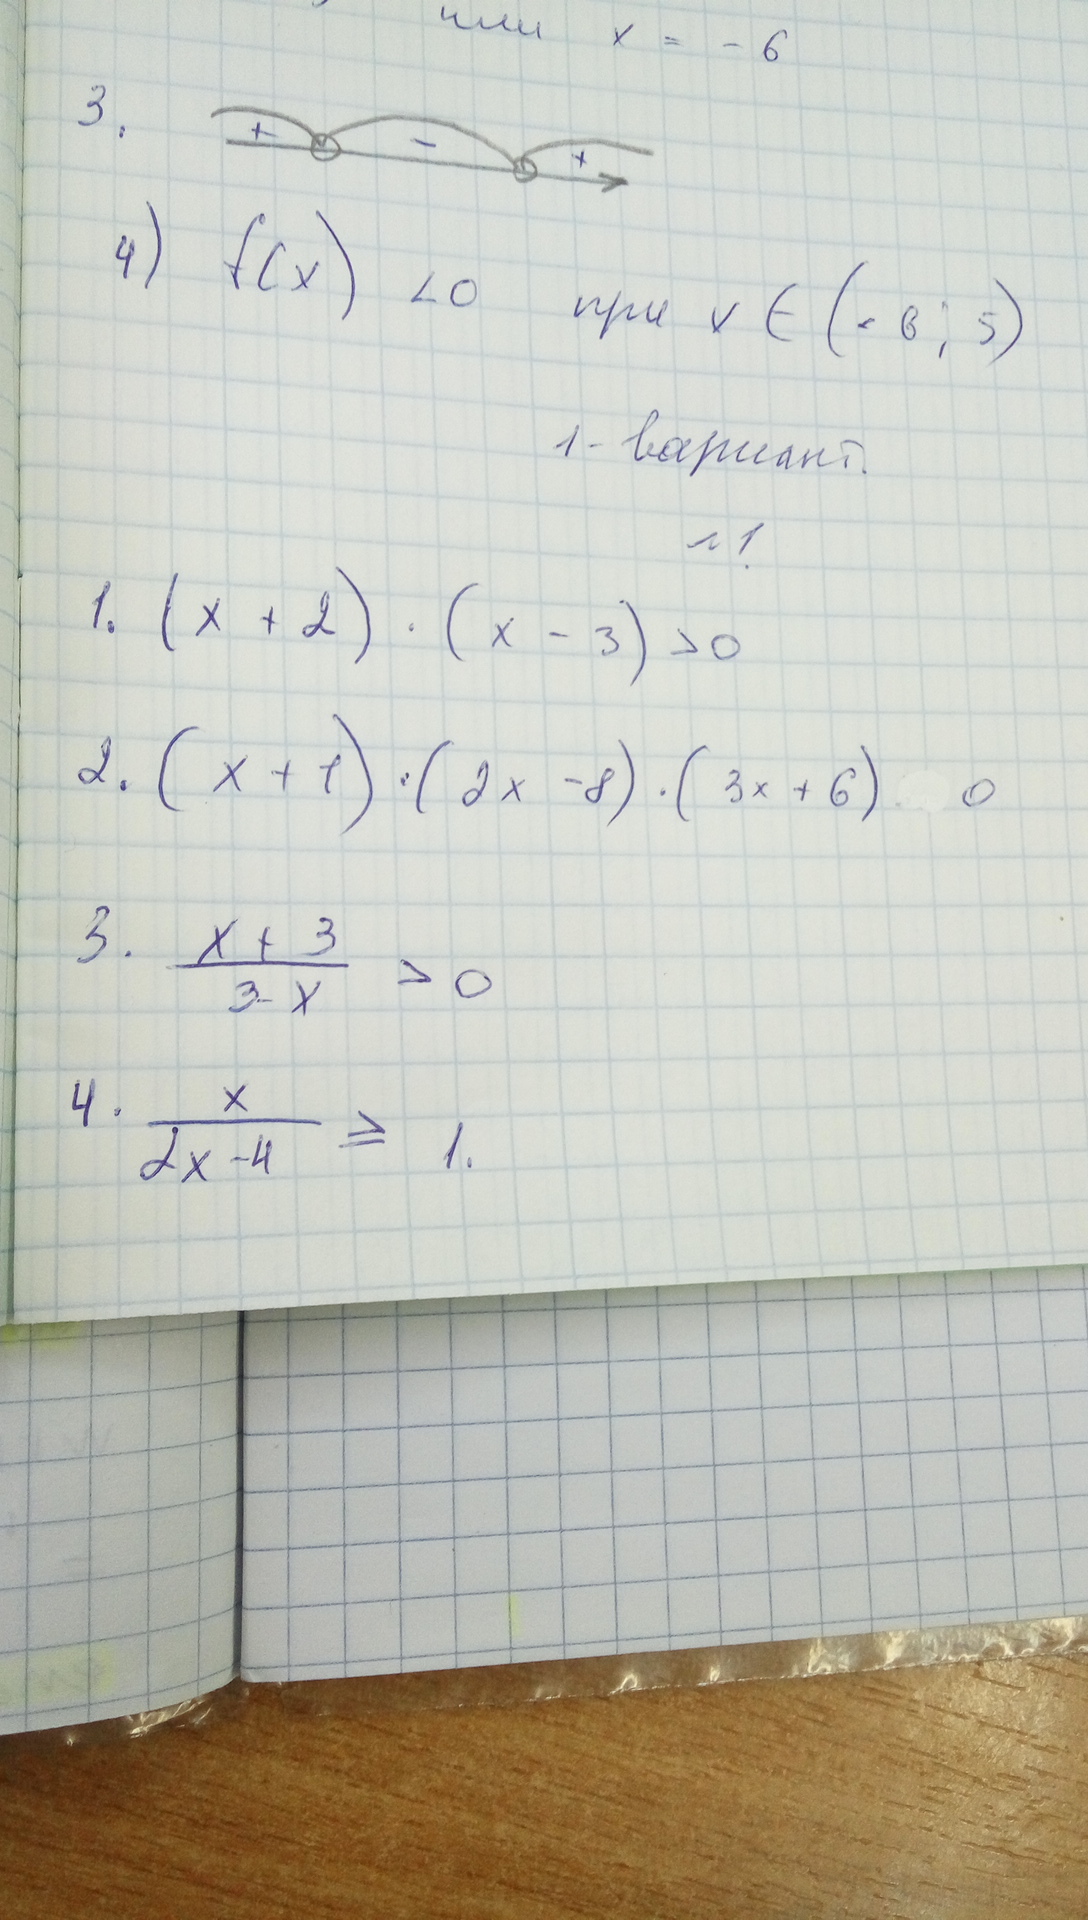 или x = -6
3.
+ - +
4) f(x) <0 при x ∈ (-6; 5)
1-вариант.
№1.
1. (x + 2) · (x - 3) >0
2. (x + 1) · (2x - 8) · (3x + 6) 0
3. x + 3 / 3 - x > 0
4. x / 2x - 4 ≥ 1.